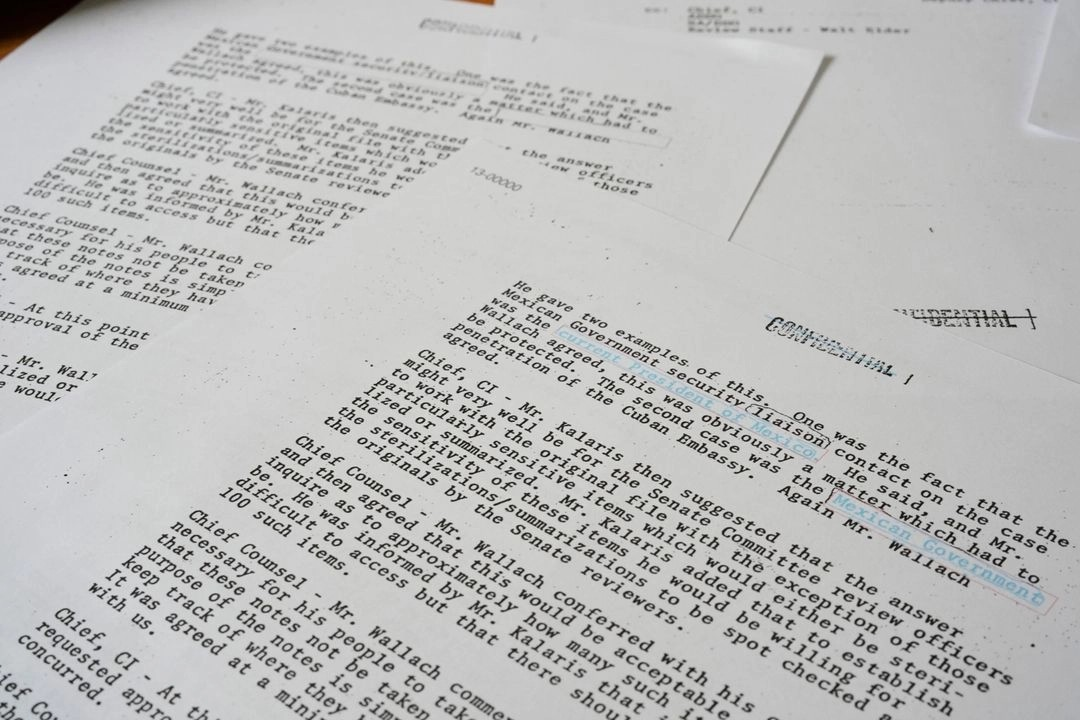 Chief, CI
ADDO
SA/DDO
Review Staff - Walt Elder
CONFIDENTIAL
He gave two examples of this. One was the fact that the
Mexican Government security/liaison contact on the case
was the He said, and Mr.
Wallach agreed, this was obviously a matter which had to
be protected. The second case was the
penetration of the Cuban Embassy. Again Mr. Wallach
agreed.
Chief, CI - Mr. Kalaris then suggested the answer
might very well be for the Senate officers
to work with the original file with those
particularly sensitive items which
lized or summarized. Mr. Kalaris
the sensitivity of these items he
the sterilizations/summarizations
the originals by the Senate
Chief Counsel - Mr. Wallach
and then agreed that this would
inquire as to approximately how
be. He was informed by Mr.
difficult to access but that
100 such items.
Chief Counsel - Mr. Wallach
necessary for his people to
at these notes not be taken
pose of the notes is
track of where they
agreed at a minimum
- At this point
approval of the
- Mr.
lized or
13-00000
CONFIDENTIAL
He gave two examples of this. One was the fact that the
Mexican Government security/liaison contact on the case
was the current President of Mexico. He said, and Mr.
Wallach agreed, this was obviously a matter which had to
be protected. The second case was the Mexican Government
penetration of the Cuban Embassy. Again Mr. Wallach
agreed.
Chief, CI - Mr. Kalaris then suggested that the answer
might very well be for the Senate Committee review officers
to work with the original file with the exception of those
particularly sensitive items which would either be steri-
lized or summarized. Mr. Kalaris added that to establish
the sensitivity of these items he would be willing for
the sterilizations/summarizations to be spot checked
the originals by the Senate reviewers.
Chief Counsel - Mr. Wallach conferred with his
and then agreed that this would be acceptable
inquire as to approximately how many such
be. He was informed by Mr. Kalaris
difficult to access but that there
100 such items.
Chief Counsel - Mr. Wallach
necessary for his people to
that these notes not be
purpose of the notes is
keep track of where they
It was agreed at a
with us.
Chief, CI - At
requested
concurred.